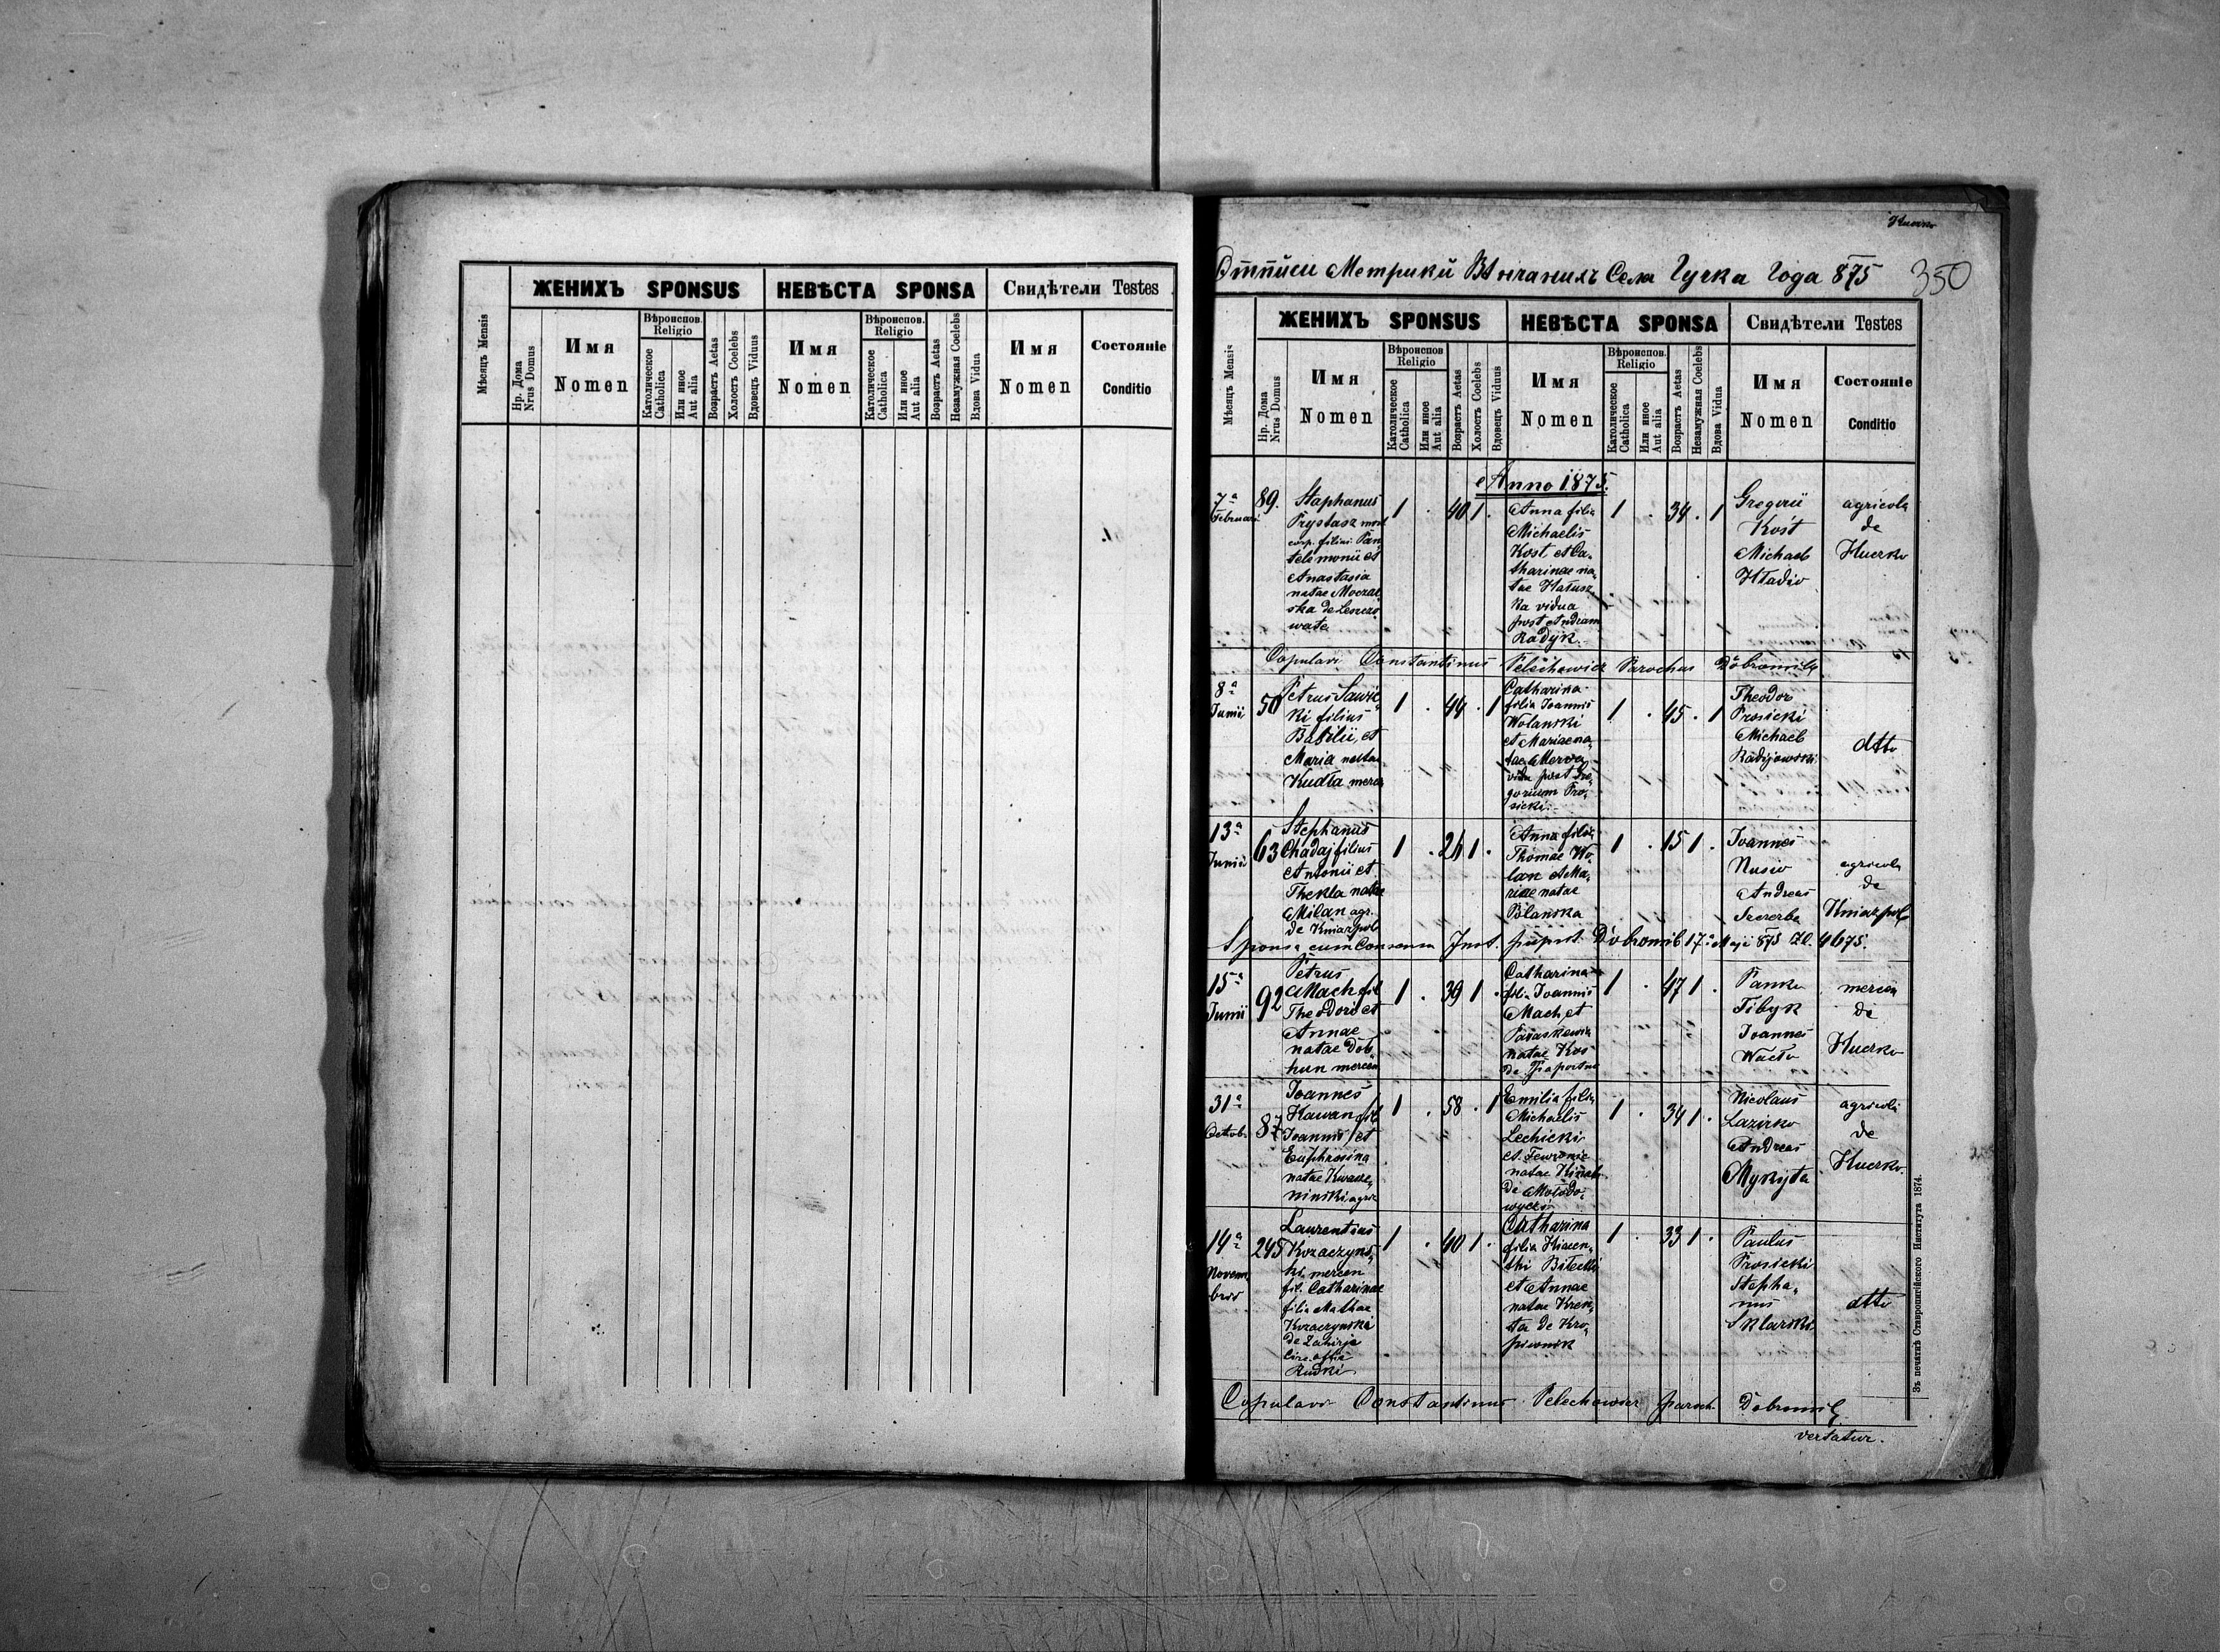 ЖЕНИХЪ SPONSUS
НЕВѢСТА SPONSA
Свидѣтели Testes
Мѣсяцъ Mensis
Нр. Дома
Nrus Domus
Имя
Nomen
Вѣроиспов.
Religio
Католическое
Catholica
Или иное
Aut alia
Возрастъ Aetas
Холостъ Coelebs
Вдовецъ Viduus
Имя
Nomen
Вѣроиспов.
Religio
Католическое
Catholica
Или иное
Aut alia
Возрастъ Aetas
Незамужная Coelebs
Вдова Vidua
Имя
Nomen
Состояніе
Conditio
Huczko
Метрики Села Гучка Года 875
350
ЖЕНИХЪ SPONSUS
НЕВѢСТА SPONSA
Свидѣтели Testes
Мѣсяцъ Mensis
Нр. Дома
Nrus Domus
Имя
Nomen
Вѣроиспов.
Religio
Католическое
Catholica
Или иное
Aut alia
Возрастъ Aetas
Холостъ Coelebs
Вдовецъ Viduus
Имя
Nomen
Вѣроиспов.
Religio
Католическое
Catholica
Или иное
Aut alia
Возрастъ Aetas
Незамужная Coelebs
Вдова Vidua
Имя
Nomen
Состояніе
Conditio
Anno 1875.
7a
Februarii
89.
Staphanus
Prystasz
filius Pan
telemonii et
Anastasia
natae Moczal
ska de Leszczo
wate
1 . 40 1 .
Anna filia
Michaelis
Kost et Ca-
tharinae na-
tae Hatusz
ka vidua
post Andream
Radyk.
1 . 34 . 1
Gregorii
Kost
Michael
Hladio
agricola
de
Huczko
Copulavi Constantinus Pelechowicz Parochus Dobromil
8a
Junii
50
Petrus Sawic
ki filius
Basilii, et
Maria natae
Kudła merc
1 . 44 . 1
Catharina
filia Joannis
Wolanski
et Mariae na-
tae Merwa
vidua post Gre-
gorium Pro-
sicki.
1 . 45 . 1
Theodor
Prosicki
Michael
Radyjowski
dtto
13a
Junii
63
Stephanus
Chadaj filius
Antonii et
Thekla natae
Milan agr.
de Kniazpol
1 . 26 1 .
Anna filia
Thomae Wo-
lan et Ma-
riae natae
Bilanska
1 . 15 1 .
Joannes
Nusio
Andreas
Szczerba
agricola
de
Kniazpol
Sponsa cum Consensu Inst. pupil. Dobromil 17a Maji 875 Zl. 4675.
15a
Junii
92
Petrus
Mach fil
Theodori et
Annae
natae Dob
hun mercen
1 . 39 1 .
Catharina
filia Joannis
Mach, et
Paraskewia
natae Kos
de
1 . 47 1 .
Panko
Tibyk
Joannes
mercen
de
Huczko
31a
Octob.
87
Joannes
Kawan fil
Joannis et
Euphrosina
natae Kwasze-
ninski agric
1 . 58 . 1
Emilia filia
Michaelis
Lechicki
et Tewronie
natae
de Mołodo-
wycci
1 . 34 1 .
Nicolaus
Lazirko
Andreas
Mykyta
agricola
de
Huczko.
14a
Novem
bris
245
Laurentius
Kozaczyns-
ki mercen
fil. Catharinae
filia Mathae
Kozaczynski
de Zahirja
Circ.
Rudki
1 . 40 1 .
Catharina
filia Hiacen-
thi Bilecki
et Annae
natae Kren-
ta de Kro-
piwnik
1 . 33 1 .
Paulus
Prosicki
Stepha-
nus
Sklarski
dtto
Copulavi Constantinus Pelechowicz paroch. Dobromil
vertatur.
Зъ печатнѣ Ставропигійского Института 1874.